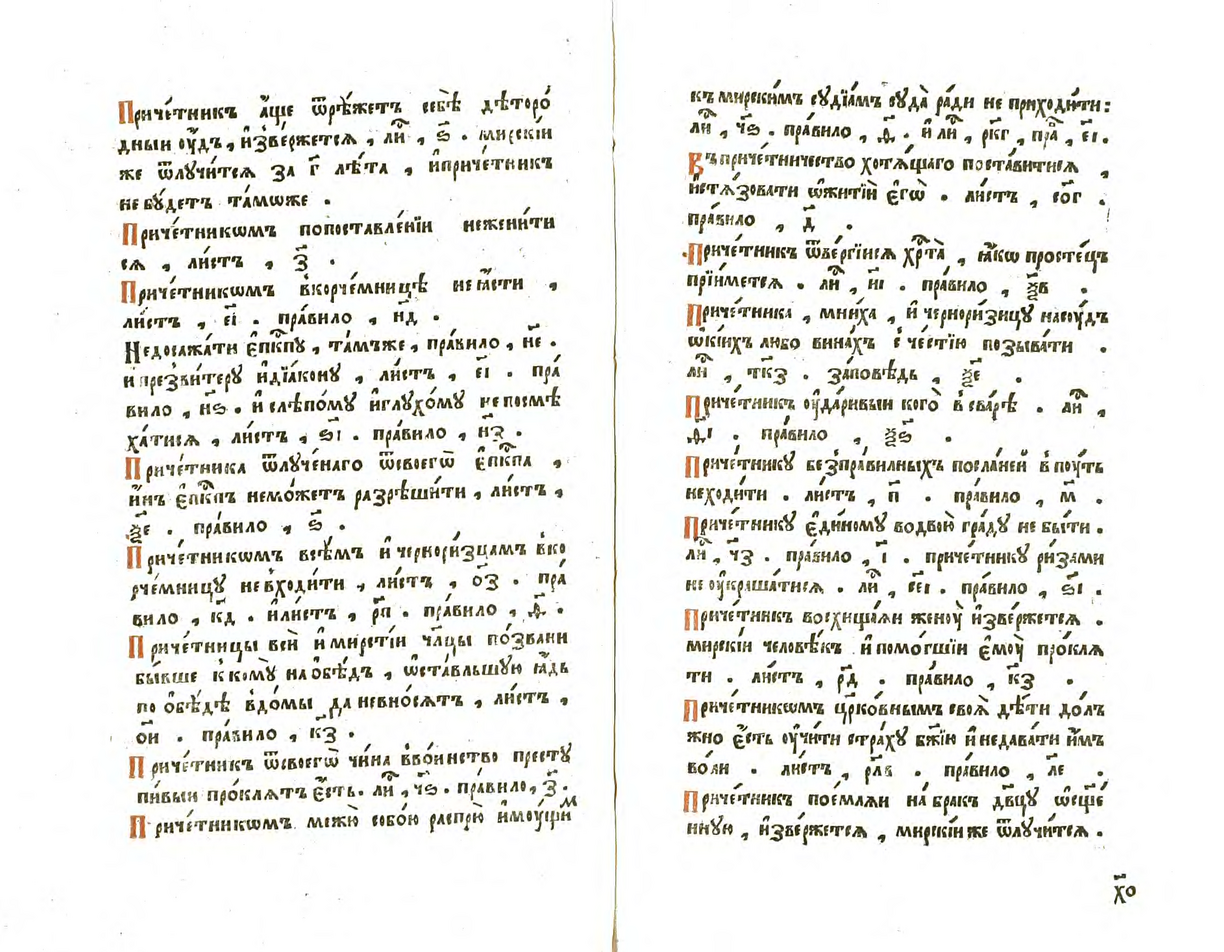 Приче́тникъ а҆́ще ѿрѣ́жетъ себѣ̀ дѣторо́
дныи ѹ҆́дъ , и҆зве́ржетсѧ , лиⷭ҇ , ѕ҃ . мирскі́и
же ѿлучи́тсѧ за г҃ лѣ́та , и҆приче́тникъ
не бꙋ́детъ та́мѡже .
Приче́тникѡмъ попоставле́нїи нежени́ти
сѧ , ли́стъ , з҃ .
Приче́тникѡмъ вкорче́мницѣ не ꙗ҆́сти ,
ли́стъ , е҃і . пра́вило , н҃д .
Недосажа́ти є҆пⷭ҇кпꙋ , та́мъже , пра́вило , н҃е .
и презви́терꙋ и҆дїа́конꙋ , ли́стъ , е҃і . пра́
вило , н҃ѕ . и҆ слѣпо́мꙋ и҆глꙋхо́мꙋ не посмѣ
ха́тисѧ , ли́стъ , ѕ҃і . пра́вило , н҃з .
Приче́тника ѿлуче́наго ѿсвоегѡ̀ є҆пⷭ҇кпа ,
и҆́нъ є҆пⷭ҇кпъ немо́жетъ разрѣши́ти , ли́стъ ,
ѯ҃е . пра́вило , ѕ҃ .
Приче́тникѡмъ всѣ́мъ и҆ чернори́зцамъ вко
рче́мницꙋ невходи́ти , ли́стъ , о҃з . пра́
вило , к҃д . и҆ли́стъ , р҃п . пра́вило , д҃ .
Приче́тницы всѝ и҆ мирсті́и чл҃цы по́звани
бы́вше к комꙋ̀ на ѻ҆бѣ́дъ , ѡ҆ста́вльшꙋю ꙗ҆́дь
по ѻ҆бѣ́дѣ вдо́мы да невно́сѧтъ , ли́стъ ,
о҃и . пра́вило , к҃з .
Приче́тникъ ѿсвоегѡ̀ чи́на вво́инство престꙋ
пи́выи про́клѧтъ є҆́сть . лиⷭ҇ , ч҃ѕ . пра́вило , з҃ .
Приче́тникѡмъ межю̀ собо́ю распрю̀ и҆мꙋ́щиⷨ
къ мирски́мъ сꙋдїа́мъ сꙋда̀ ра́ди не приходи́ти :
лиⷭ҇ , ч҃ѕ . пра́вило , д҃ . и҆ лиⷭ҇ , рк҃г , праⷡ҇ , е҃і .
Въприче́тничество хотѧ́щаго поста́витисѧ ,
и҆стѧ́зовати ѡ҆житїѝ є҆гѡ̀ . ли́стъ , со҃г .
пра́вило , д҃ .
Приче́тникъ ѿве́ргїисѧ хрⷭ҇та̀ , ꙗ҆́кѡ просте́цъ
прїи́метсѧ . лиⷭ҇ , н҃і . пра́вило , ѯ҃в .
Приче́тника , мни́ха , и҆ чернори́зицꙋ насꙋ́дъ
ѡ҆ки́ихъ любо вина́хъ с че́стїю позыва́ти .
лиⷭ҇ , тк҃з . за́повѣдь , ѯ҃е .
Приче́тникъ ѹ҆да́ривыи кого̀ в сва́рѣ . лиⷭ҇ ,
д҃і . пра́вило , ѯ҃ѕ .
Приче́тникꙋ безпра́вилныхъ посла́неи в пꙋ́ть
неходи́ти . ли́стъ , п҃ . пра́вило , м҃ .
Приче́тникꙋ є҆ди́номꙋ водвою̀ гра́дꙋ не бы́ти .
лиⷭ҇ , ч҃з . пра́вило , і҃ . приче́тникꙋ ри́зами
не ѹ҆краша́тисѧ . лиⷭ҇ , се҃і . пра́вило , ѕ҃і .
Приче́тникъ восхища́ѧи женꙋ̀ и҆зве́ржетсѧ .
мирскі́и человѣ́къ и҆ помо́гшїи є҆мꙋ̀ про́клѧ
ти . ли́стъ , р҃д . пра́вило , к҃з .
Приче́тникѡмъ цр҃ко́внымъ своѧ̀ дѣ́ти до́лъ
жно є҆́сть ѹ҆чи́ти стра́хꙋ бж҃їю и҆ недава́ти и҆́мъ
во́ли . ли́стъ , рл҃в . пра́вило , л҃е .
Приче́тникъ пое́млѧи на́ брак дв҃цꙋ ѡ҆сщ҃е́
ннꙋю , и҆зве́ржетсѧ , мирскі́иже ѿлучи́тсѧ .
х҃о